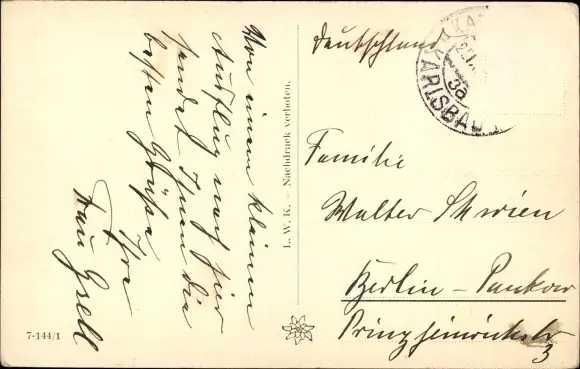 Von einem kleinen
Ausflug nach hier
sendet Ihnen die
besten Grüße
Ihre
Frau Gsell
L. W. K. – Nachdruck verboten.
7-144/1
Deutschland
KARLSBAD
3a
Familie
Walter
Berlin – Pankow
Prinz Heinrichstr
3